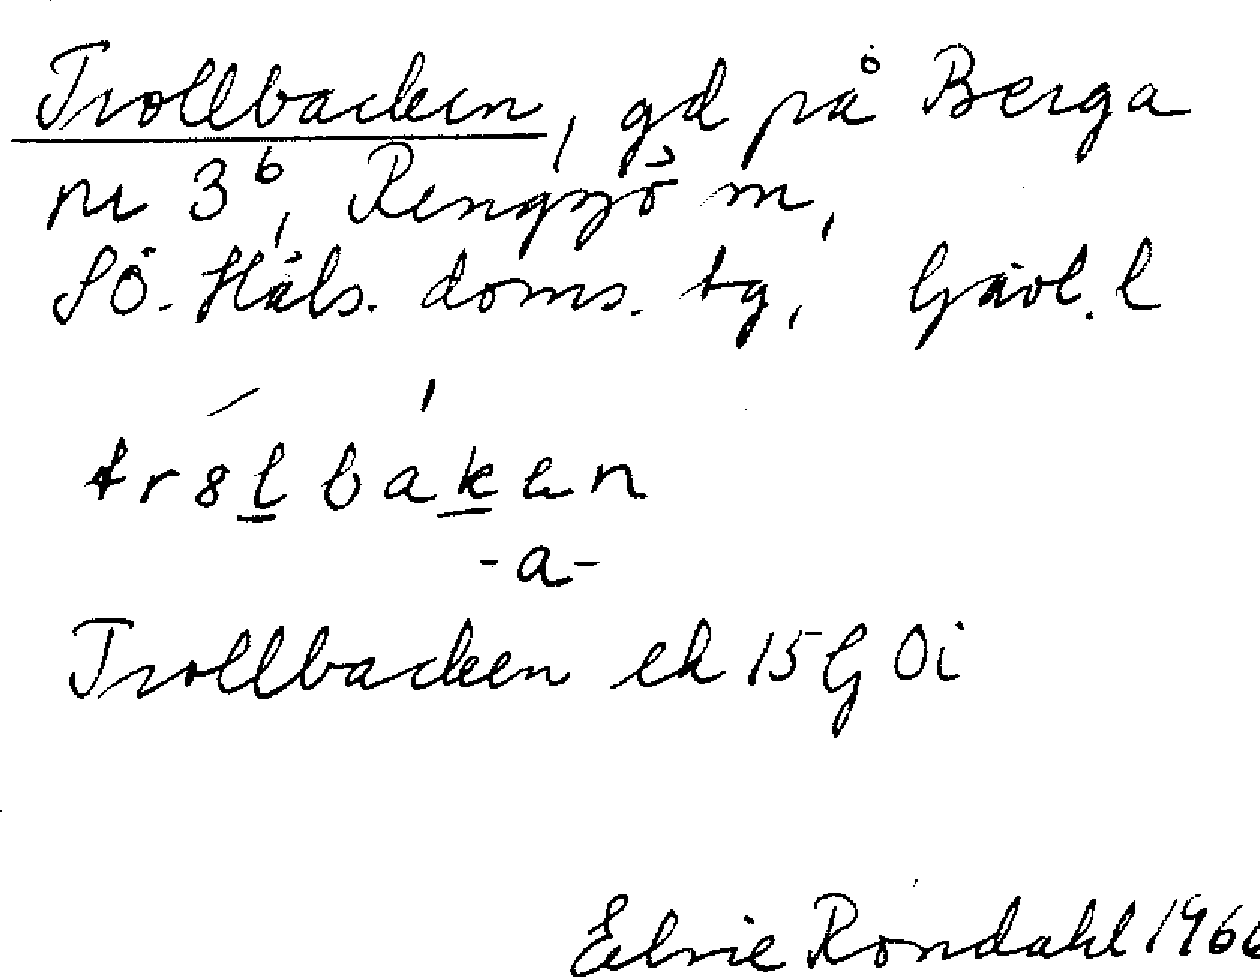 Trollbacken, gd på Berga
nr 3⁶, Rengsjö m,
SÖ. Häls. doms. tg, Gävl. l
tr8lbaken
-a-
Trollbacken ek 15G 0i
Elvie Rondahl 196